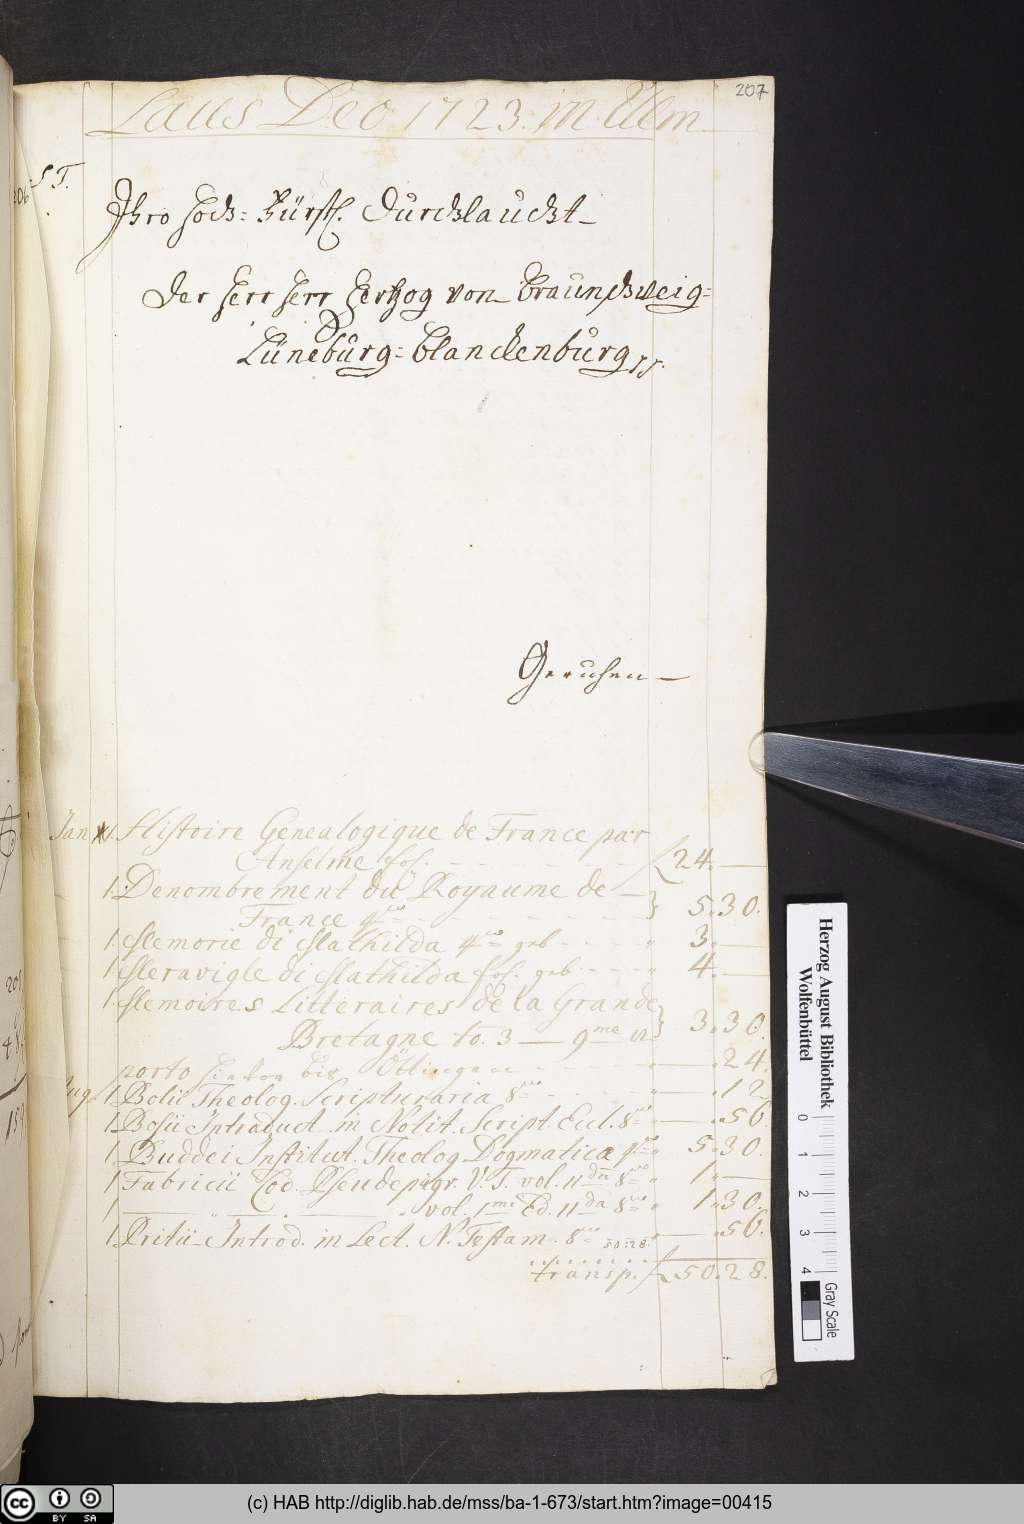 207
Laus Deo 1723. in Ulm
S T.
206
Ihro Hoch= Fürstl. Durchlaucht
Der Herr Herr Hertzog von Braunschweig=
Lüneburg= Blanckenburg
Geruhen
Jan 1. Histoire Genealogique de France par
Anselme fol. 24. —
1. Denombrement du Royaume de
France 4to 5. 30.
1. Memorie di Mathilda 4to geb 3. —
1. Meravigle di Mathilda fol. geb 4. —
1. Memoires Litteraires de la Grande
Bretagne to. 3 — 9me 3. 30.
porto bis 24.
Aug 1. Bolii Theolog. Scripturaria 8vo 12
1. Bosii Introduct. in Notit. Script. Eccl. 8vo 56
1. Buddei Institut. Theolog. Dogmaticæ 4to 5. 30.
1 Fabricii Cod. Pseudepigr. V. T. vol. II dū 8vo 1. —
1 vol. 1mi Ed. II da 8vo 1. 30.
1. Pritii Introd. in Lect. N. Testam. 8vo 56.
50:28.
transp. f 50. 28.
Herzog August Bibliothek
Wolfenbüttel
0 1 2 3 4
Gray Scale
(c) HAB http://diglib.hab.de/mss/ba-1-673/start.htm?image=00415
cc BY SA